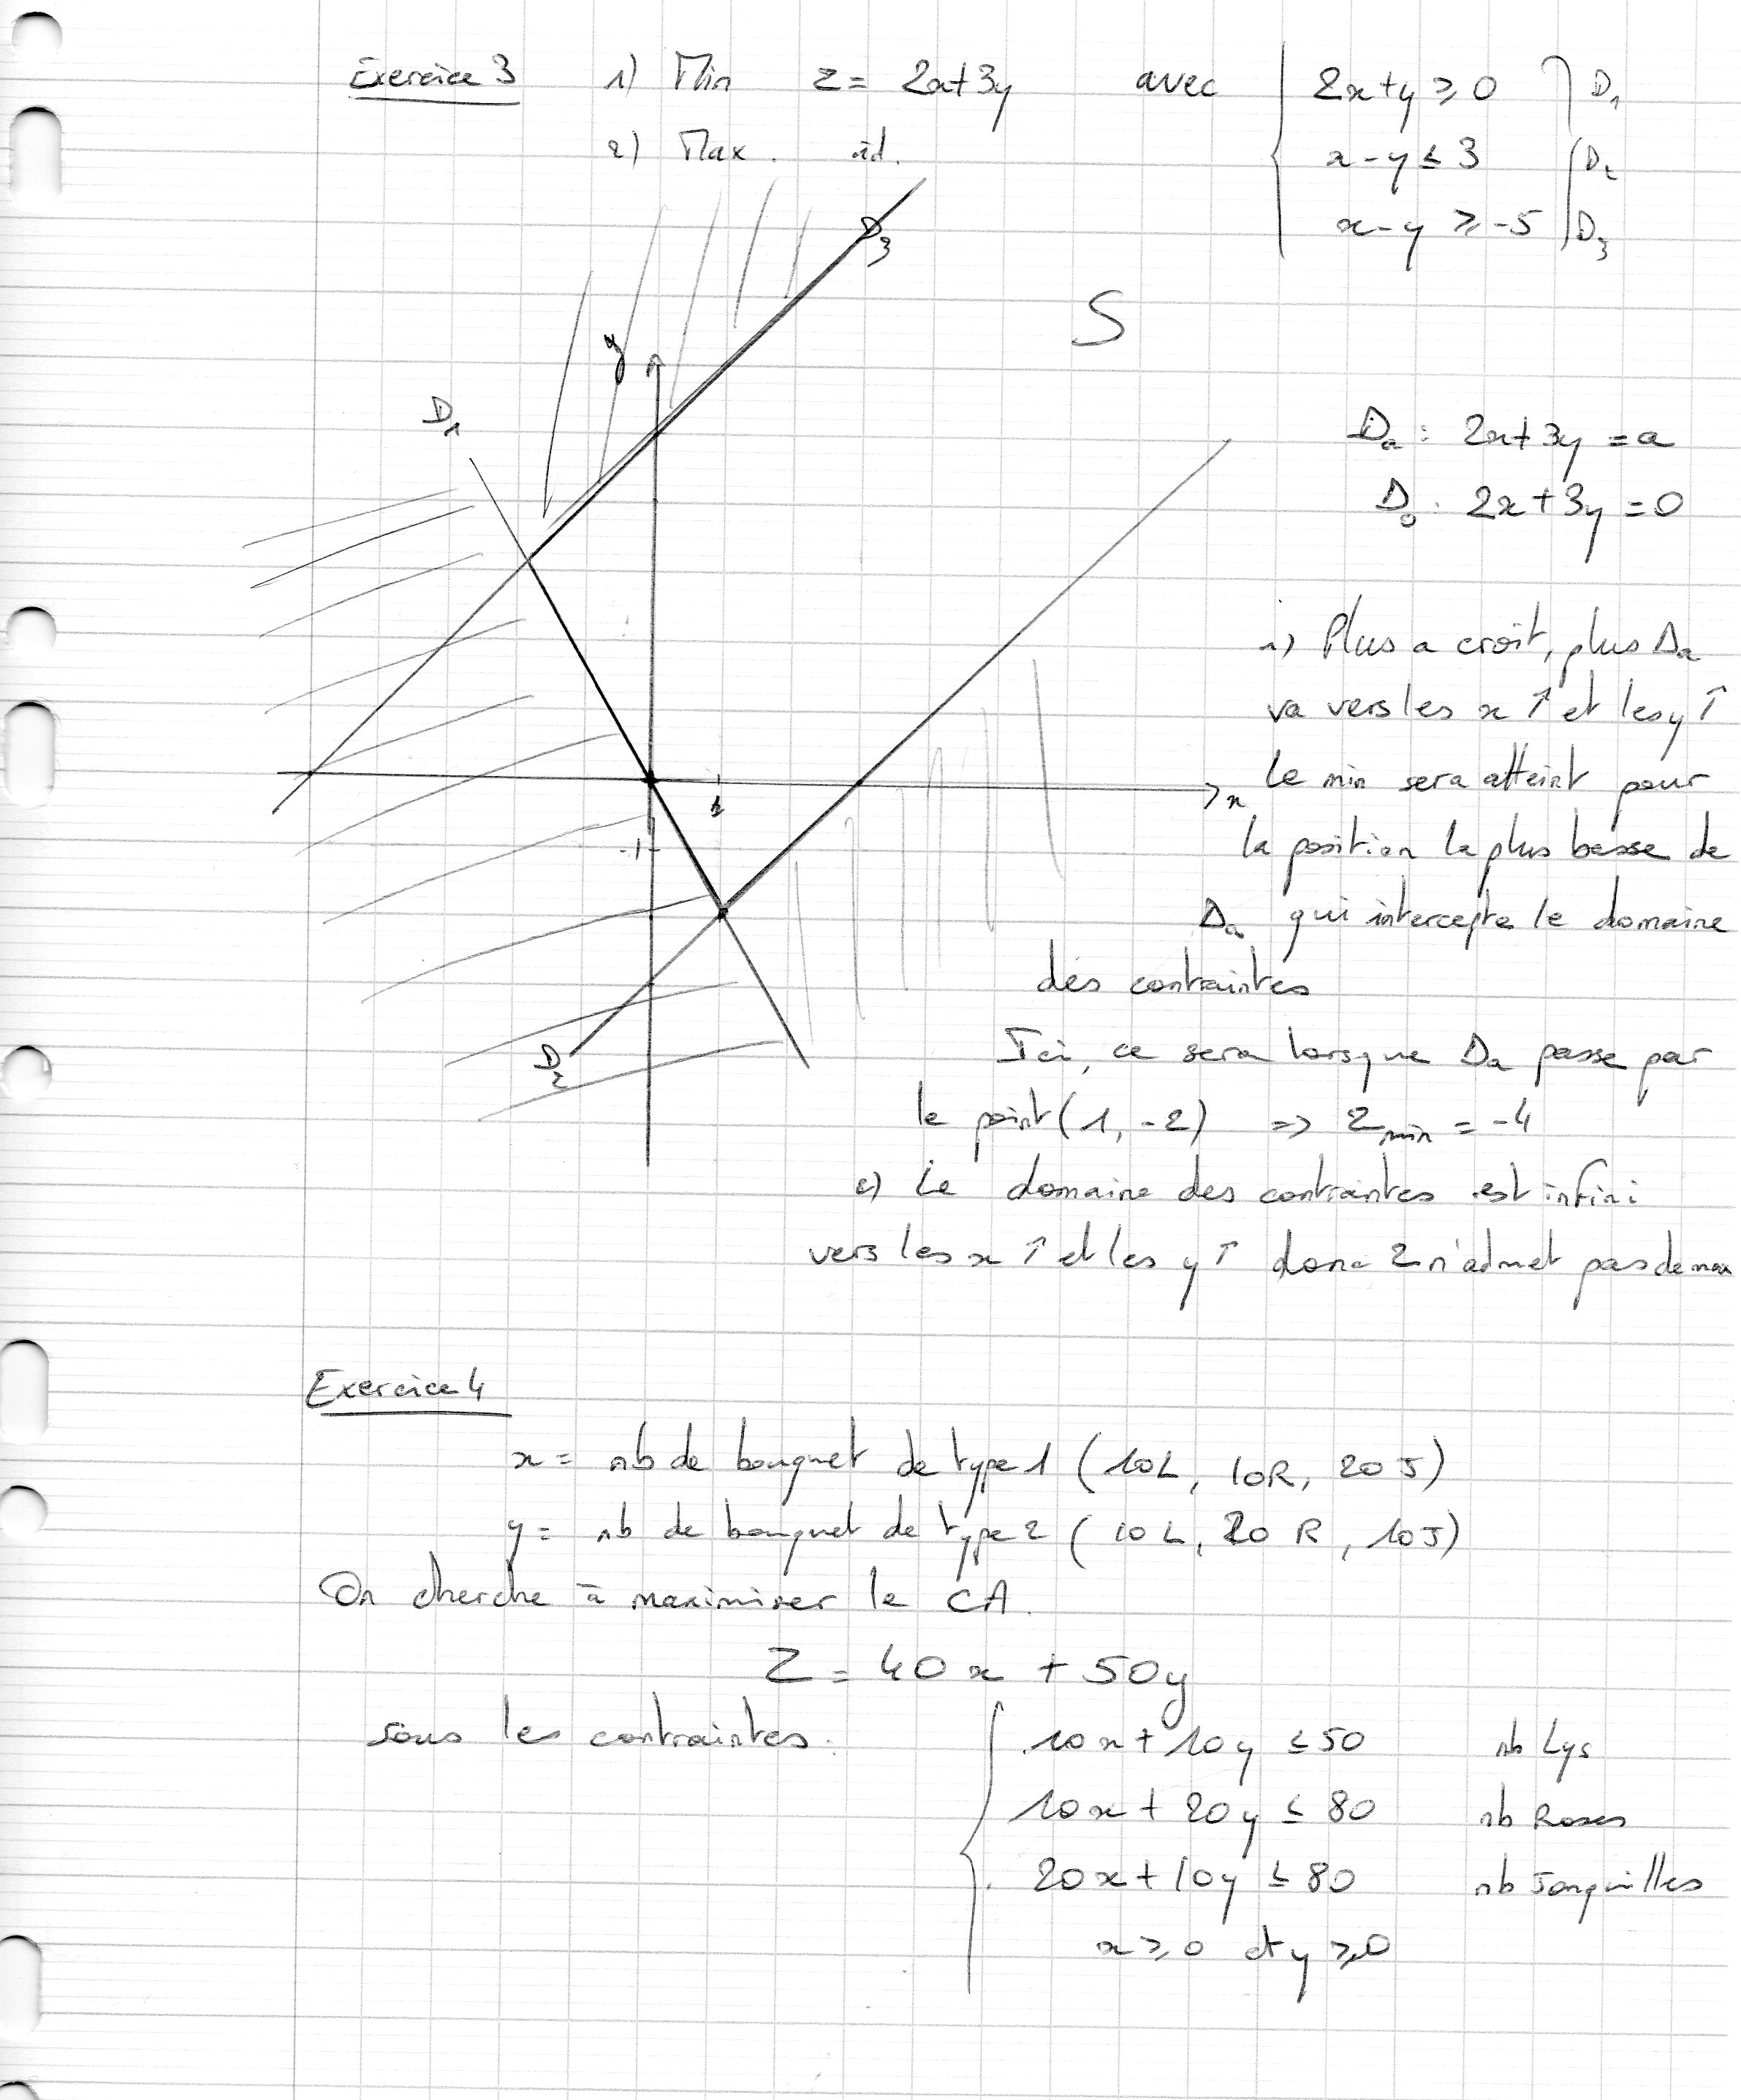 Exercice 3 1) Min z = 2x+3y avec { 2x+y ≥ 0 } D1
2) Max . id. x-y ≤ 3 D2
x-y ≥ -5 D3
D3
S
y
D1
Da : 2x+3y = a
D0 : 2x+3y = 0
1) Plus a croit, plus Da
va vers les x ↑ et les y ↑
Le min sera atteint pour
x
1
la position la plus basse de
-1
Da qui intercepte le domaine
des contraintes
Ici, ce sera lorsque Da passe par
D2
le point (1, -2) => Zmin = -4
2) Le domaine des contraintes est infini
vers les x ↑ et les y ↑ donc Z n'admet pas de max
Exercice 4
x = nb de bouquet de type 1 (10L, 10R, 20J)
y = nb de bouquet de type 2 (10L, 20R, 10J)
On cherche à maximiser le CA.
Z = 40x + 50y
sous les contraintes : { 10x + 10y ≤ 50 nb Lys
10x + 20y ≤ 80 nb Roses
20x + 10y ≤ 80 nb Jonquilles
x ≥ 0 et y ≥ 0